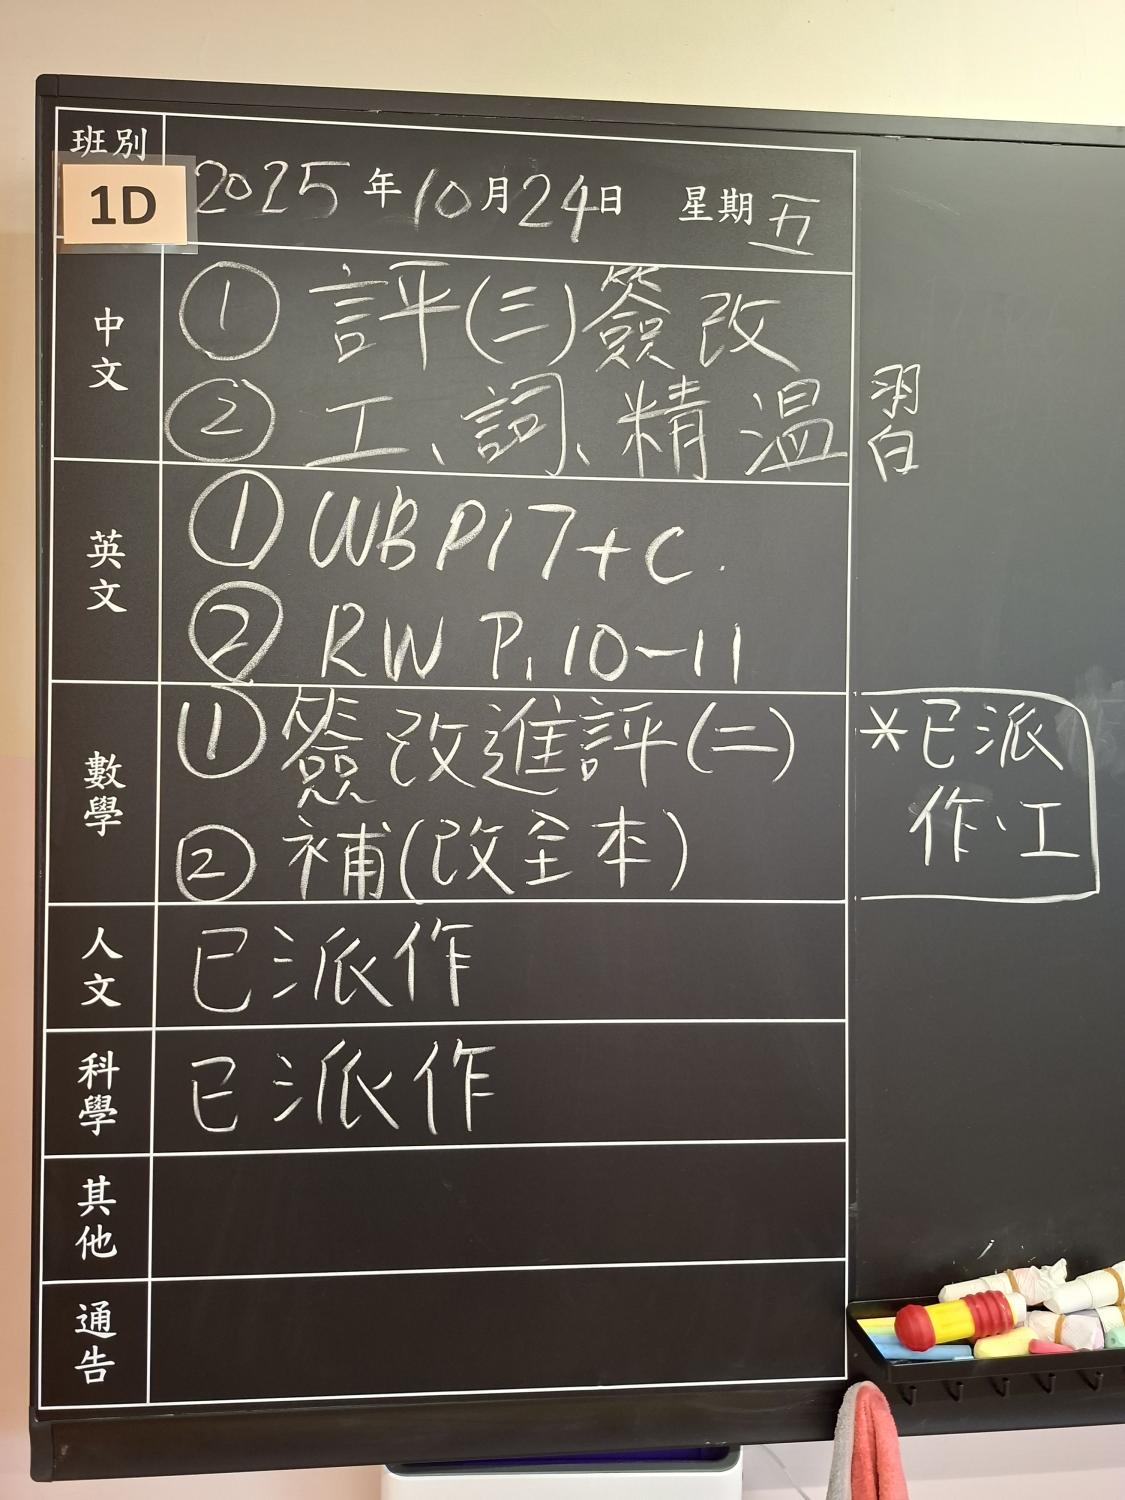 班別
1D
2025年10月24日 星期五
中文
① 評(三)簽改
② 工、詞、精 溫習
英文
① WB P17+C.
② RW P.10-11
數學
① 簽改進評(二)
② 補(改全本)
*已派
作、工
人文
已派作
科學
已派作
其他
通告